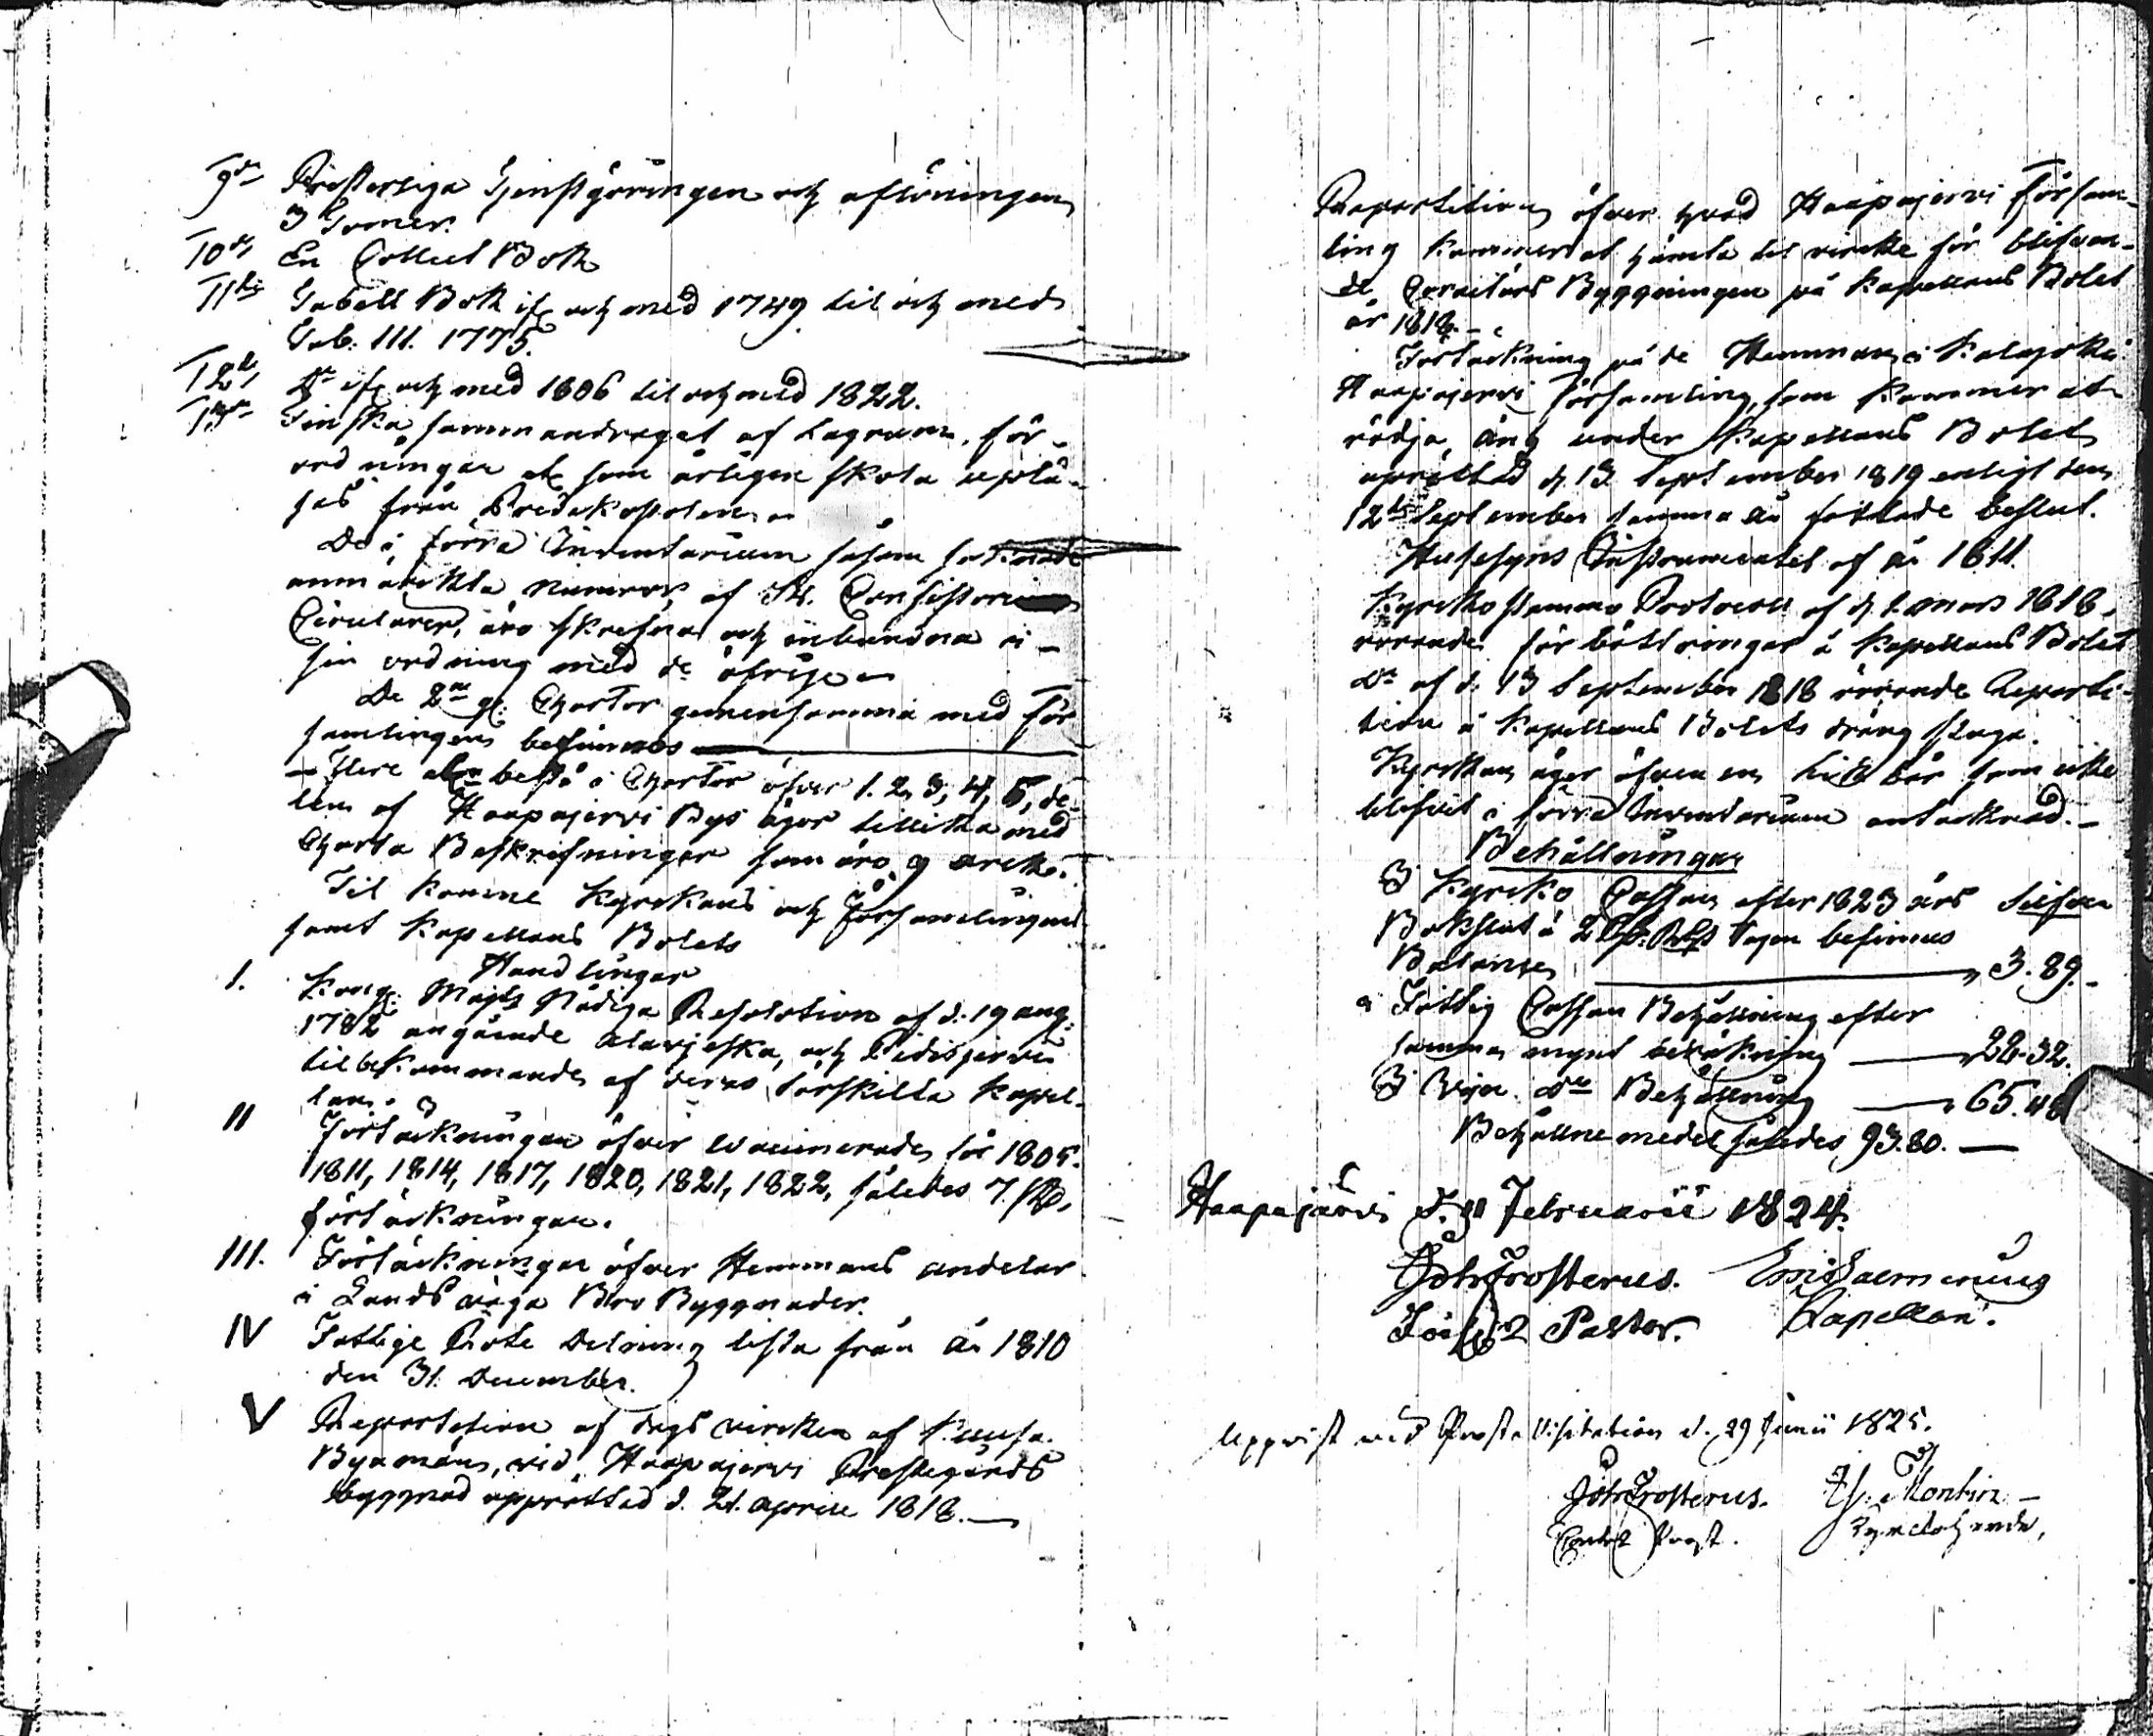 9de Presterliga Tjenstgöringen och aflöningen
3 Tomer.
10de En Collect Bok
11te Tabell Bok ifr. och med 1749 til och med
Tab. III. 1775.
12te Do ifr. och med 1806 til och med 1822.
13de Finska sammandraget af Lagrum, för-
ordningar etc som årligen skola uplä-
sas från Predikostolen.
De i förra Inventarium såsom saknade
anmärkta numror af Consistorii
Circulairer, äro skrefna och inbundna i
sin ordning med de öfrige
De 2ne gl. Chartor gemensamma med För
samlingens befinnas
Flere bestå i Chartor öfver 1. 2, 3, 4, 5, de-
len af Haapajervi Bys ägor tillika med
Charta Beskrifningar som äro 9 arck.
Til komne Kyrckans och Församlingens
samt Kapellans Bolets
Handlingar
I. Kongl. Majts Nådiga Resolution af d. 19 aug.
1782 angående Alavjeska, och Pidisjervi
tilbekommande af deras särskilta Kapel-
lan.
II Förtäckningar öfver vaccinerade för 1805.
1811, 1814, 1817, 1820, 1821, 1822, således 7. St.
förtäckningar.
III. Förtäckningar öfver Hemmans andelar
i Lands väga Bro Byggnader.
IV Fattige Rote Delning lista från År 1810
den 31. December.
V Repartition af dags vircken af
Byamän, vid Haapajervi Prestegårds
byggnad upprättad d. 21. Aprill 1818.
Repartition öfver hvad Haapajervi Försam-
ling kommer at hämta til vircke för blifvan-
de Byggningen på Kapellans Bolet
år 1818.
Förtäckning på de Hemman i Kalajoki
Haapajervi Församling, som kommer at
rödja äng under Kapellans Bolet
uprättad d 13 September 1819 enligt den
12te September samma år fattade beslut.
Husesyns Instrumentet af år 1811.
Kyrcko stämmo Protocoll af d 1. mars 1818,
rörande förbättringar å Kapellans Bolet
Do af d. 13 September 1818 rörande Reparti-
tion å Kapellans Bolets dräng stuga.
Kyrckan äger öfven en Lik bår som icke
blifvit i förra Inventarium antecknad.
Behållningar
I Kyrcko Cassan efter 1823 års Silfver
Bokslut à 2 befinnes
Balance 3. 89.
i Fattig Cassan Behållning efter
samma mynt uträkning 28. 32.
Do Behållning 65. 48
Behållne medel således, 93. 80.
Haapajärvi d. 11 Februarii 1824.
Joh Frosterus.
Pastor. Capellan.
Uppvist vid Prosts Visitation d. 29 Junii 1825.
Joh Frosterus. Montin
Contr. Prost.